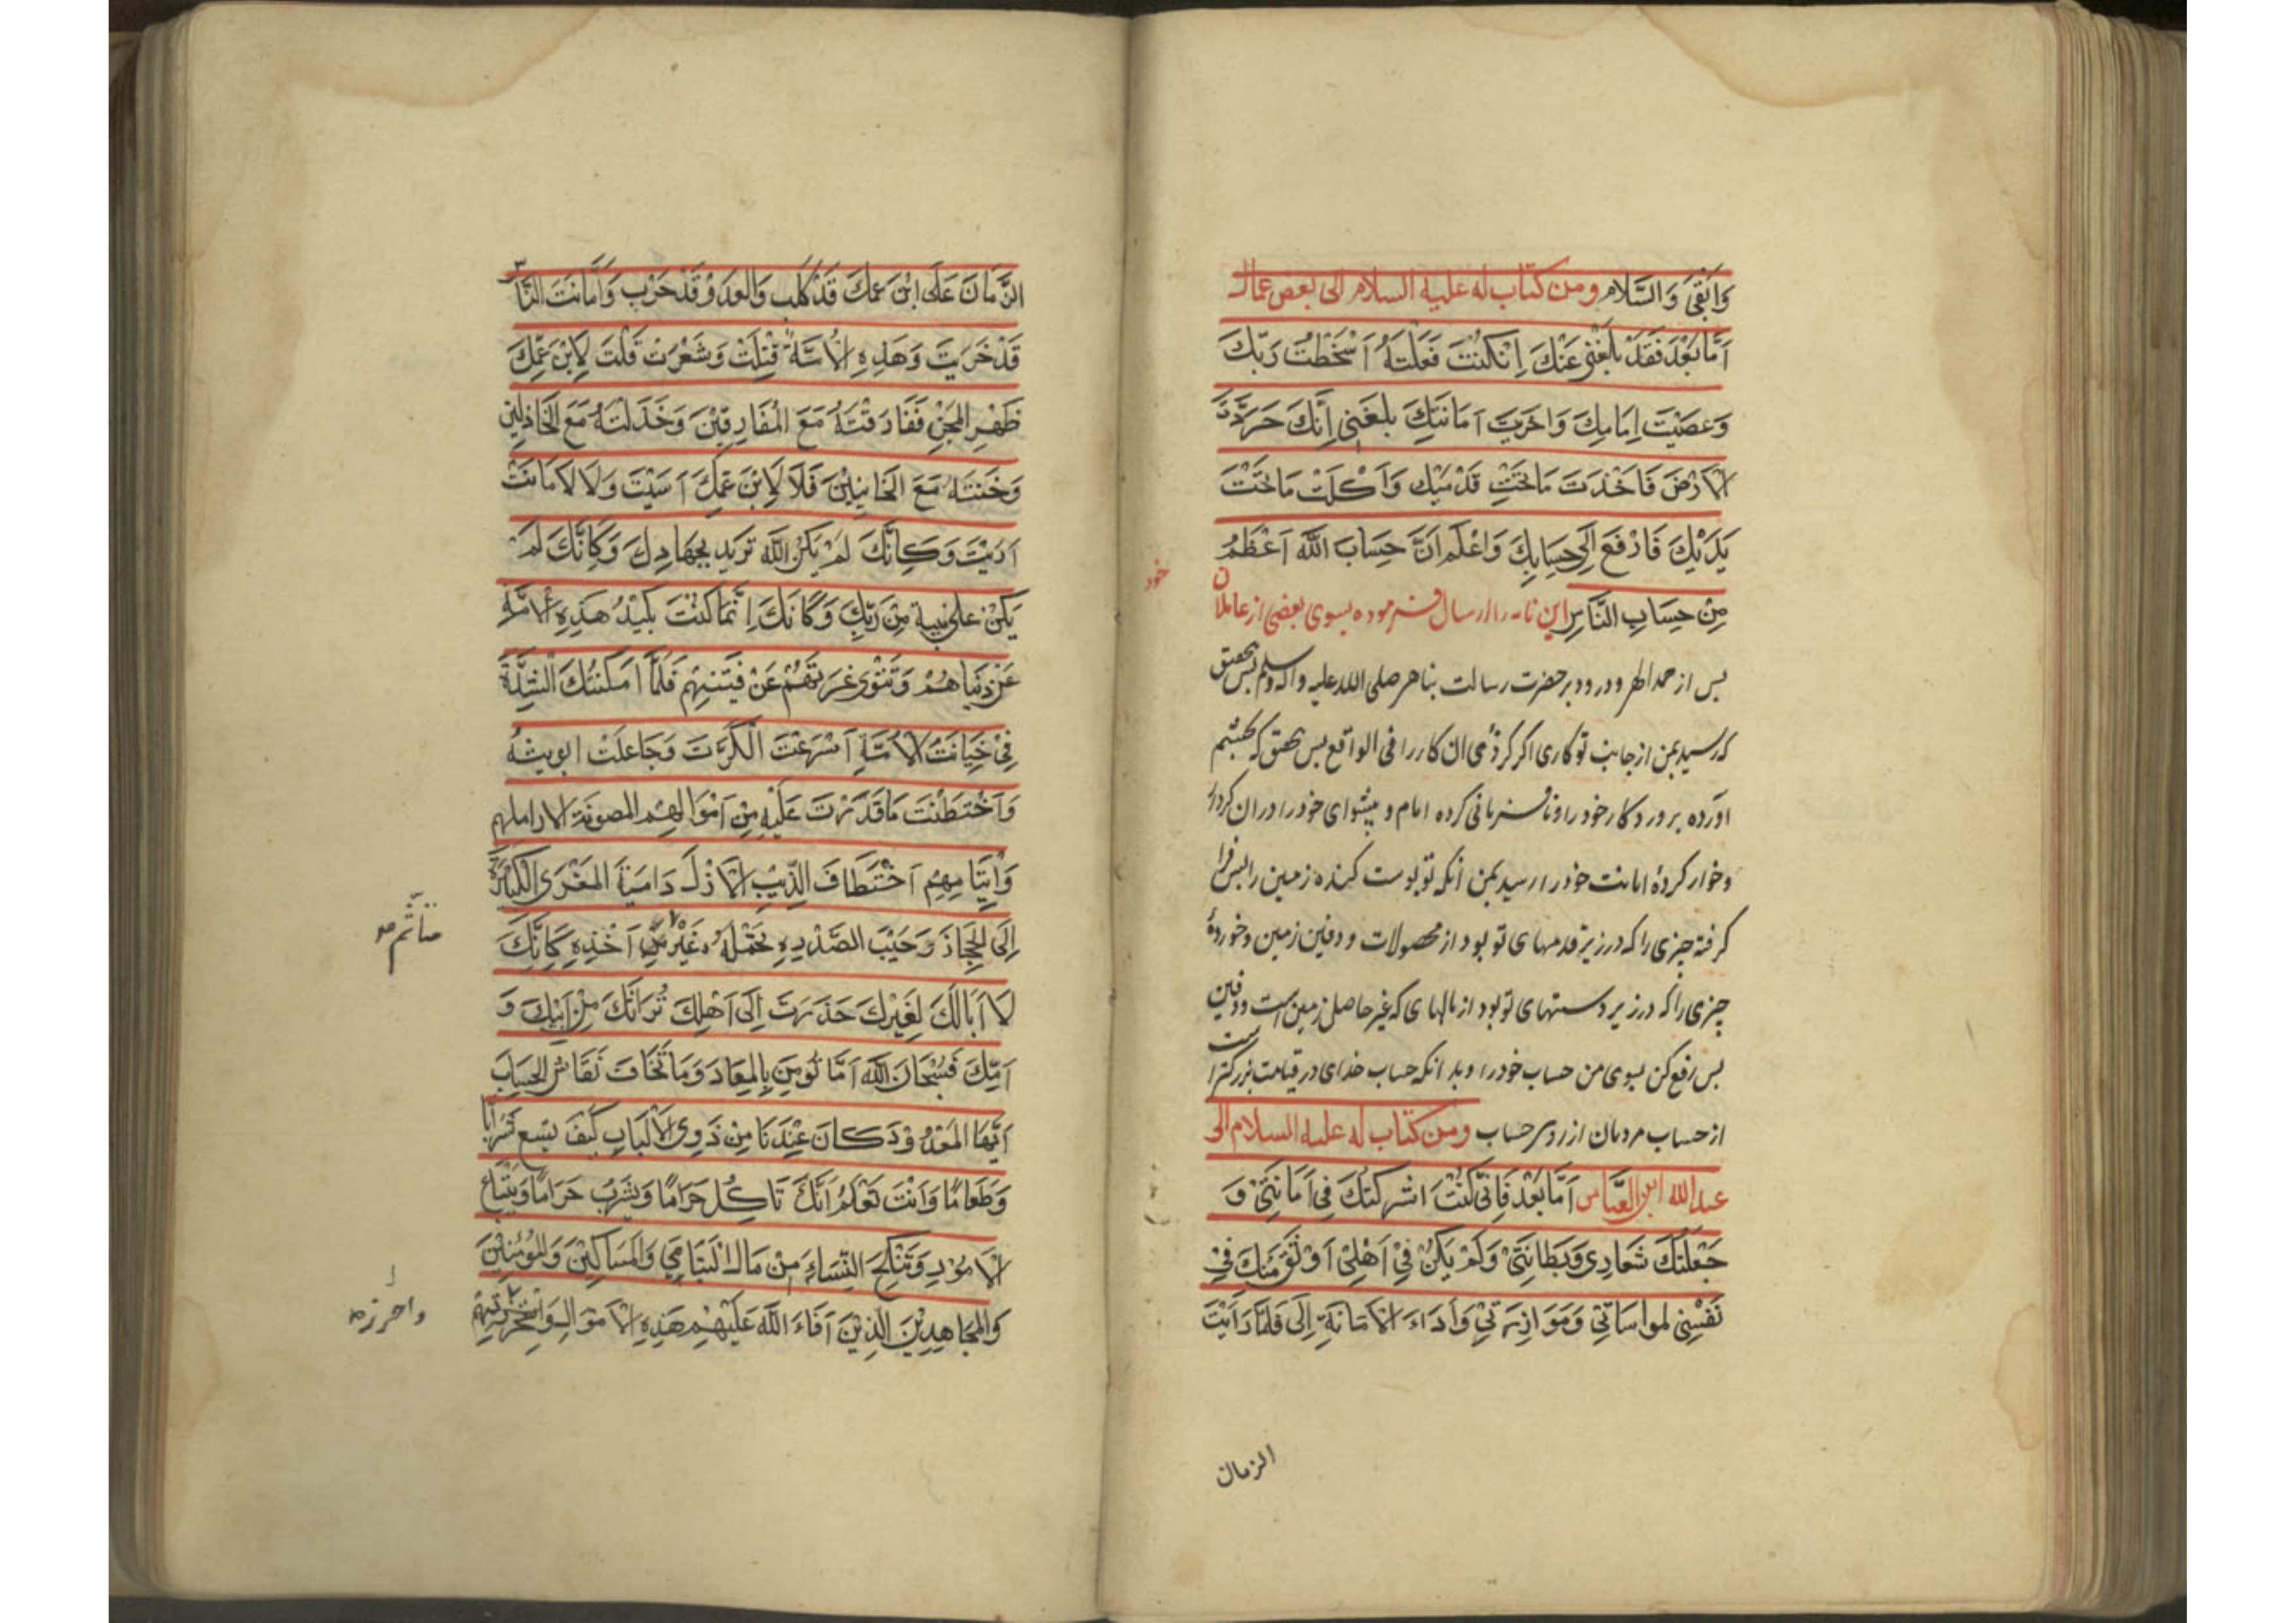 وَاَبْقَىٰ وَالسَّلام ومن كتاب له عليه السلام الى بعض عماله
اَمَّا بَعْدَ فَقَدْ بَلَغَنِي عَنْكَ اِنْكُنْتَ فَعَلْتَهُ اَسْخَطْتَ رَبَّكَ
وَعَصَيْتَ اِمَامِكَ وَاخَزَيتَ اَمَانَتِكَ بلغَنِي اِنَّكَ حَرَّدْتَ
الْاَرْضَ فَاَخَذْتَ مَا تَحْتَ قَدَمَيْكَ وَاَكَلْتَ مَا تَحْتَ
يَدَيْكَ فَارْفَع اِلَى حِسَابِكَ وَاعْلَم اَنَّ حِسَابَ اللّٰهِ اَعْظَمُ
مِنْ حِسَابِ النَّاسِ اين نامه را ارسال فرموده بسوى بعضى از عاملان
خود
پس از حمد الهى ودرود بر حضرت رسالت پناهى صلى الله عليه واله وسلم پس بتحقيق
كه رسيد بمن از جانب تو كارى اكر كردۀ ان كار را فى الواقع پس بتحقق كه بخشم
اورده پرورد كار خود را ونافرمانى كرده امام و پيشواى خود را در ان كردار
وخوار كردۀ امانت خود را رسيد بمن انكه تو پوست كنده زمين را پس فرا
كرفته چيزى را كه در زير قدمهاى تو بود از محصولات ودفين زمين وخوردۀ
چيزى را كه در زير دستهاى تو بود از مالهاى كه غير حاصل زمين است ودفين
پس رفع كن بسوى من حساب خود را وبدانكه حساب خداى در قيامت بزركتر است
از حساب مردمان از روى حساب ومن كتاب له عليه السلام الى
عبد الله ابن العبَّاس اَمَّا بَعْدَ فَاِنِّى كُنْتُ اشركتك فِى اَمَانَتِىْ وَ
جَعَلْتُكَ شَعَارِى وَبِطَانَتِىْ وَلَمْ يَكُنْ فِىْ اَهْلِىْ اَوْثَقَ مِنْكَ فِىْ
نَفْسِىْ لمواسَاتِى وَمَوَازِرَتِىْ وَاَدَاءَ الْاَمَانَةِ اِلَىَّ فَلَمَّا رَاَيْتَ
الزمان
الزَّمَانَ عَلَى ابْن عَمِّكَ قَدْ كَلِبَ وَالعَدوَّ قَدْ حَرَب وَاَمَانَتَ النَّاس
قَدْ خَزِيَتْ وَهَذِهِ الْاُمَّةَ فَتِكَتْ وَشَغَرَتْ قَلَبْتَ لِابْنِ عَمِّكَ
ظَهْرَ المِجَنّ فَفَارَقْتَهُ مَعَ الْمُفَارِقِيْنَ وَخَذَلْتَهُ مَعَ الْخَاذِلِيْن
وَخُنْتَهُ مَعَ الخَائِنِيْنَ فَلَا لِاِبْن عَمِّكَ اَسَيْتَ وَلَا الْاَمَانَتَ
اَدَّيْتَ وَكَاَنَّكَ لَمْ يَكُنْ اللّٰه تُرِيد بِجِهَادِكَ وَكَاَنَّكَ لَمْ
يَكُنْ عَلى بَيِّنَةٍ مِنْ رَبِّكَ وَكَاَنَّكَ اِنَّمَا كُنْتَ تَكِيْدُ هَذِهِ الْاُمَّة
عَنْ دُنْيَاهُمْ وَتَنْوِى غِرَّتَهُمْ عَنْ فَيْئِهِمْ فَلَمَّا اَمْكَنَتْكَ الشِّدَّةُ
فِىْ خِيَانَت الْاُمَّةِ اَسْرَعْتَ الْكَرَّتَ وَعَاجَلْتَ الوَثْبَةَ
وَاخْتَطَفْتَ مَا قَدَرْتَ عَلَيْهِ مِنْ اَمْوَالِهِمْ المصونَة لاراملهم
وَاَيْتَامِهِمْ اَخْتِطَافَ الذِّئْبِ الْاَزَلّ دَامِيَةَ المعْزَى الْكَسِيْرَة
اِلَى الْحِجَازِ رَحِيْبَ الصَّدْرِ بِحَمْلِهِ غَيْرَ مِنْ اَخْذِهِ كَاَنَّكَ
متاثم صح
لَا اَبَا لَكَ لِغَيْرِكَ حَدَرْتَ اِلَى اَهْلِكَ تُرَاثَكَ مِنْ اَبِيْكَ وَ
اُمِّكَ فَسُبْحَانَ اللّٰهِ اَمَّا تُومِن بِالمعَادِ وَمَا تَخَافَ نَقَاشَ الحِسَابِ
اَيُّهَا المَعْدُودُ كَانَ عِنْدَنَا مِنْ ذَوِى الْاَلْبَابِ كَيْفَ تسِيغ شَرَابًا
وَطَعَامًا وَاَنْتَ تَعْلَمُ اَنَّكَ تَاكُلُ حَرَامًا وَتشْرَبُ حَرَامًا وَتَبْتَاعُ
الْاِمَاءِ وَتَنْكِحُ النِّسَاءَ مِنْ مَال الْيَتَامَى وَالْمَسَاكِيْنَ وَالمُؤْمِنِيْنَ
وَالمجَاهِدِيْنَ الَّذِيْنَ اَفَاءَ اللّٰهُ عَلَيْهِمْ هَذِهِ الْاَمْوَالِ
واحرز صح